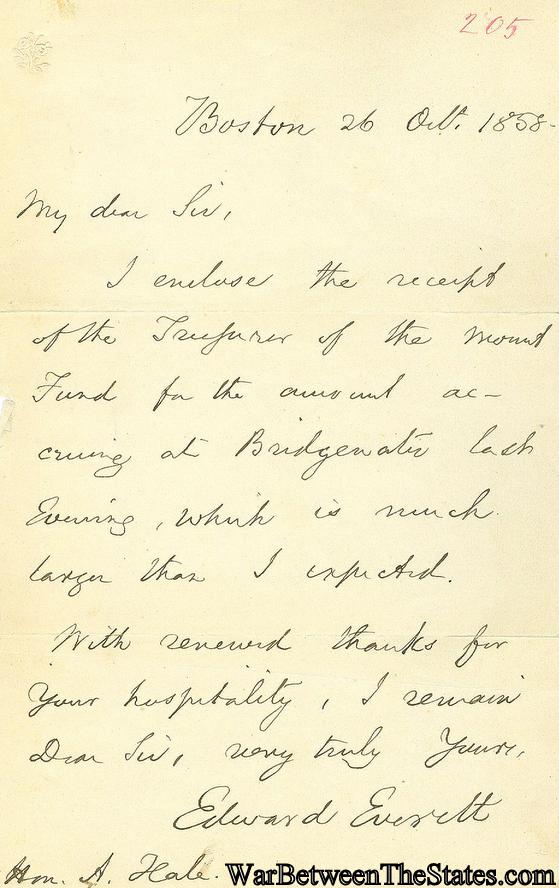 205
Boston 26 Oct. 1858.
My dear Sir,
I enclose the receipt
of the Treasurer of the Mount
Fund for the amount ac-
cruing at Bridgewater last
Evening, which is much
larger than I expected.
With renewed thanks for
your hospitality, I remain
Dear Sir, very truly Yours,
Edward Everett
Hon. A. Hale.
WarBetweenTheStates.com